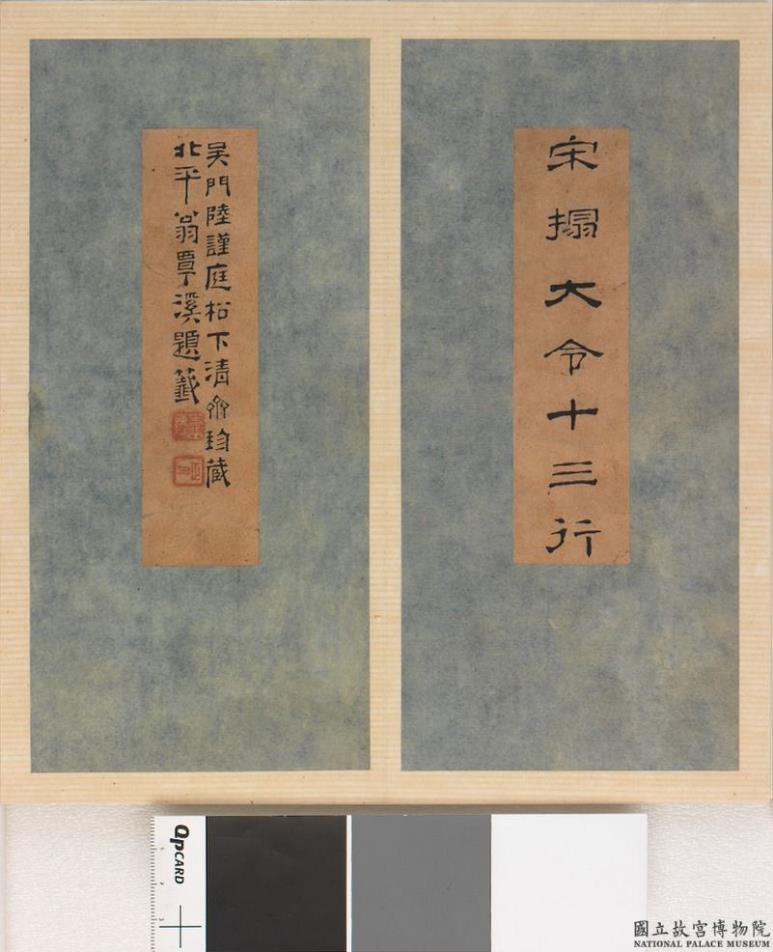 宋搨大令十三行
吴門陸謹庭松下清齋珍藏
北平翁覃溪題籤
QPCARD
1
2
3
國立故宮博物院
NATIONAL PALACE MUSEUM